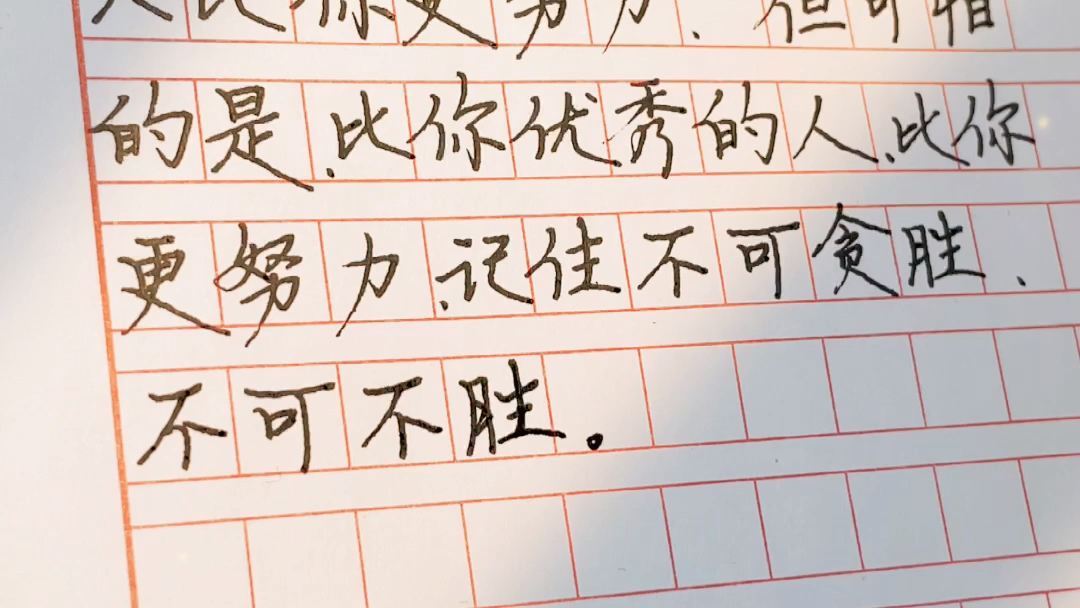 人比你更努力、但可惜
的是、比你优秀的人、比你
更努力、记住不可贪胜、
不可不胜。